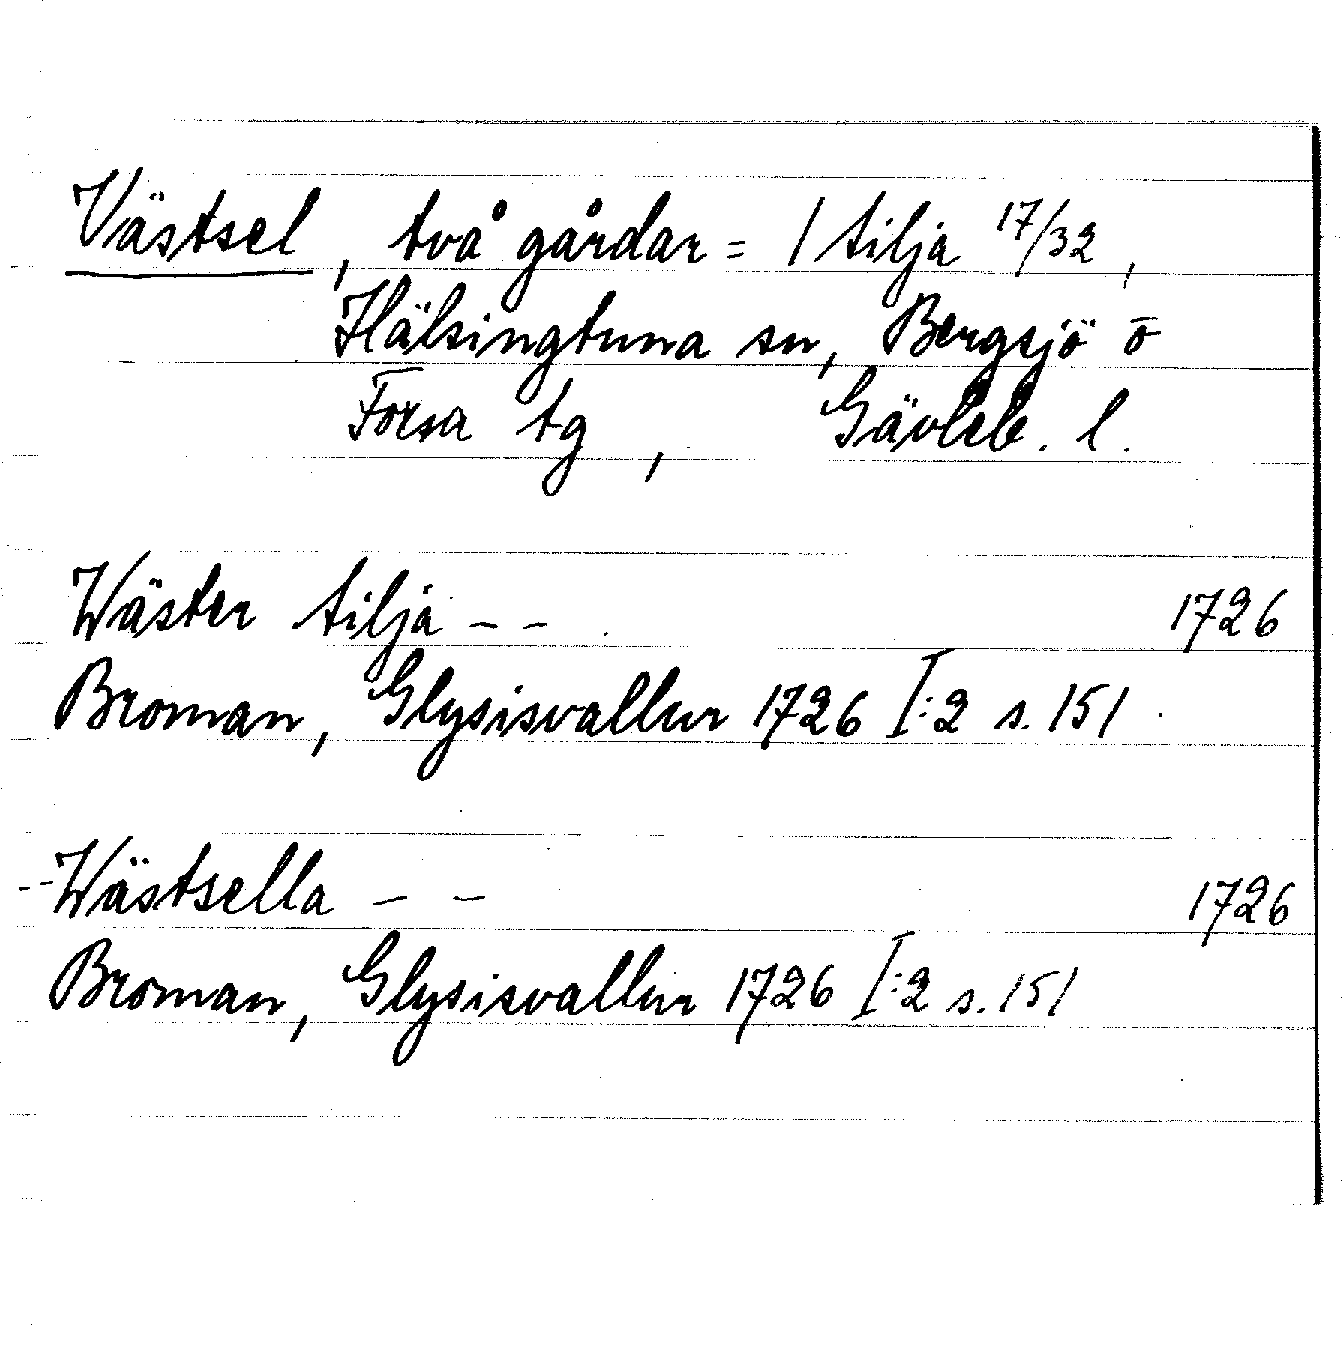 Västsel, två gårdar = I tilja 17/32,
Hälsingtuna sn, Bergsjö ō
Forsa tg, Gävleb. l.
Wäster tilja – – 1726
Broman, Glysisvallur 1726 I:2 s. 151
-- Wästsella – – 1726
Broman, Glysisvallur 1726 I:2 s. 151